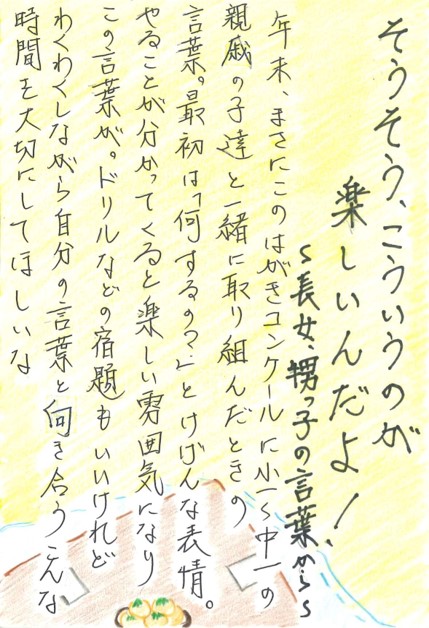 そうそう、こういうのが
楽しいんだよ!
~長女、甥っ子の言葉から~
年末、まさにこのはがきコンクールに小一~中一の
親戚の子達と一緒に取り組んだときの
言葉。最初は「何するの?」とけげんな表情。
やることが分かってくると楽しい雰囲気になり
この言葉が。ドリルなどの宿題もいいけれど
わくわくしながら自分の言葉と向き合うこんな
時間を大切にしてほしいな